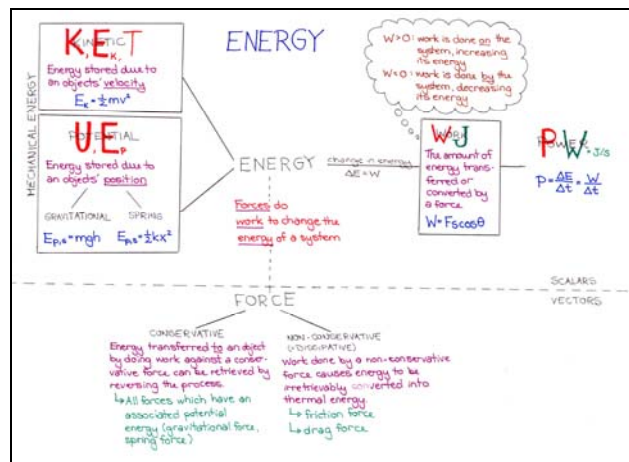 ENERGY
MECHANICAL ENERGY
KINETIC
K, E_K, T
Energy stored due to
an objects' velocity
E_K = ½mv²
POTENTIAL
U, E_P
Energy stored due to
an objects' position
GRAVITATIONAL
E_P,s = mgh
SPRING
E_P,s = ½kx²
ENERGY
change in energy
ΔE = W
Forces do
work to change the
energy of a system
W>0: work is done on the
system, increasing
its energy
W<0: work is done by the
system, decreasing
its energy
WORK
W J
The amount of
energy trans-
ferred or
converted by
a force
W = Fscosθ
POWER
P W = J/s
P = ΔE/Δt = W/Δt
SCALARS
VECTORS
FORCE
CONSERVATIVE
Energy transferred to an object
by doing work against a conser-
vative force can be retrieved by
reversing the process.
↳ All forces which have an
associated potential
energy (gravitational force,
spring force)
NON-CONSERVATIVE
(=DISSIPATIVE)
Work done by a non-conservative
force causes energy to be
irretrievably converted into
thermal energy.
↳ friction force
↳ drag force